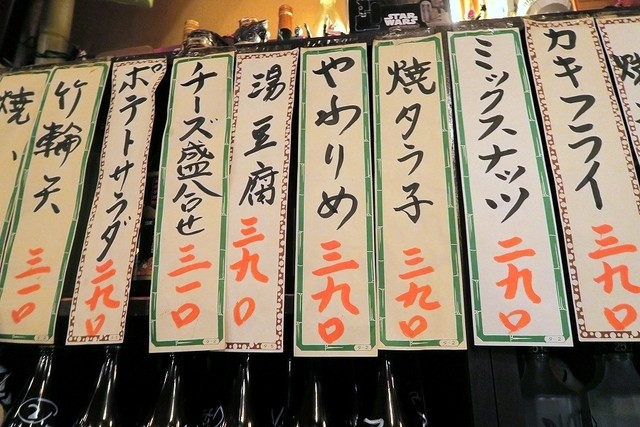 STAR WARS
焼
カキフライ 三九〇
ミックスナッツ 二九〇
焼タラ子 三九〇
やわりめ 三九〇
湯豆腐 三九〇
チーズ盛合せ 三一〇
ポテトサラダ 二九〇
竹輪天 三一〇
焼
②